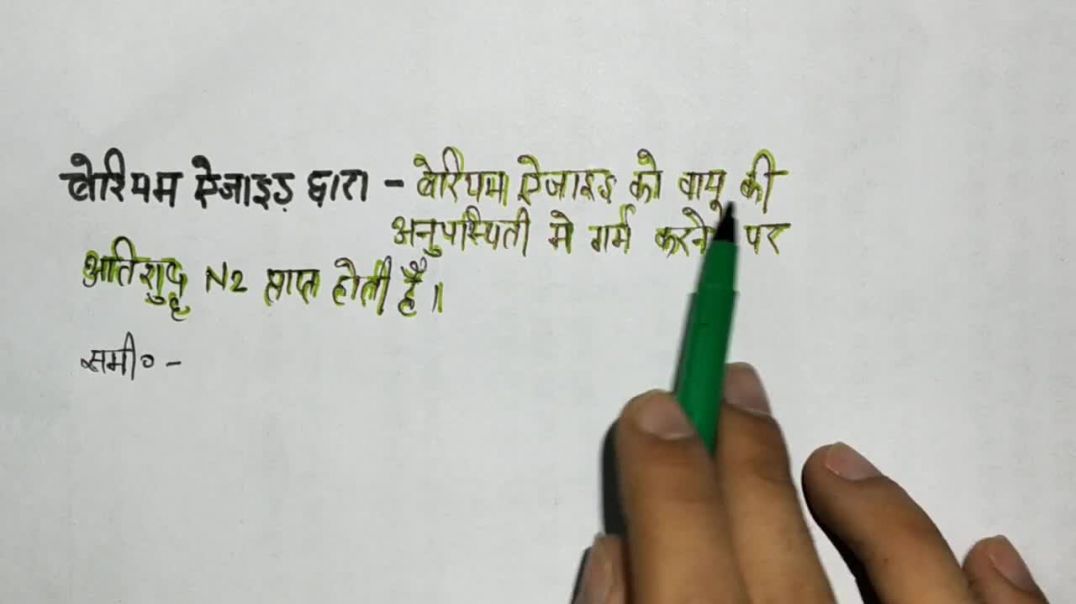 बेरियम ऐजाइड़ द्वारा - बेरियम ऐजाइड को वायु की
अनुपस्थिती मे गर्म करने पर
अतिशुद्ध N2 प्राप्त होती हैं।
समी० -